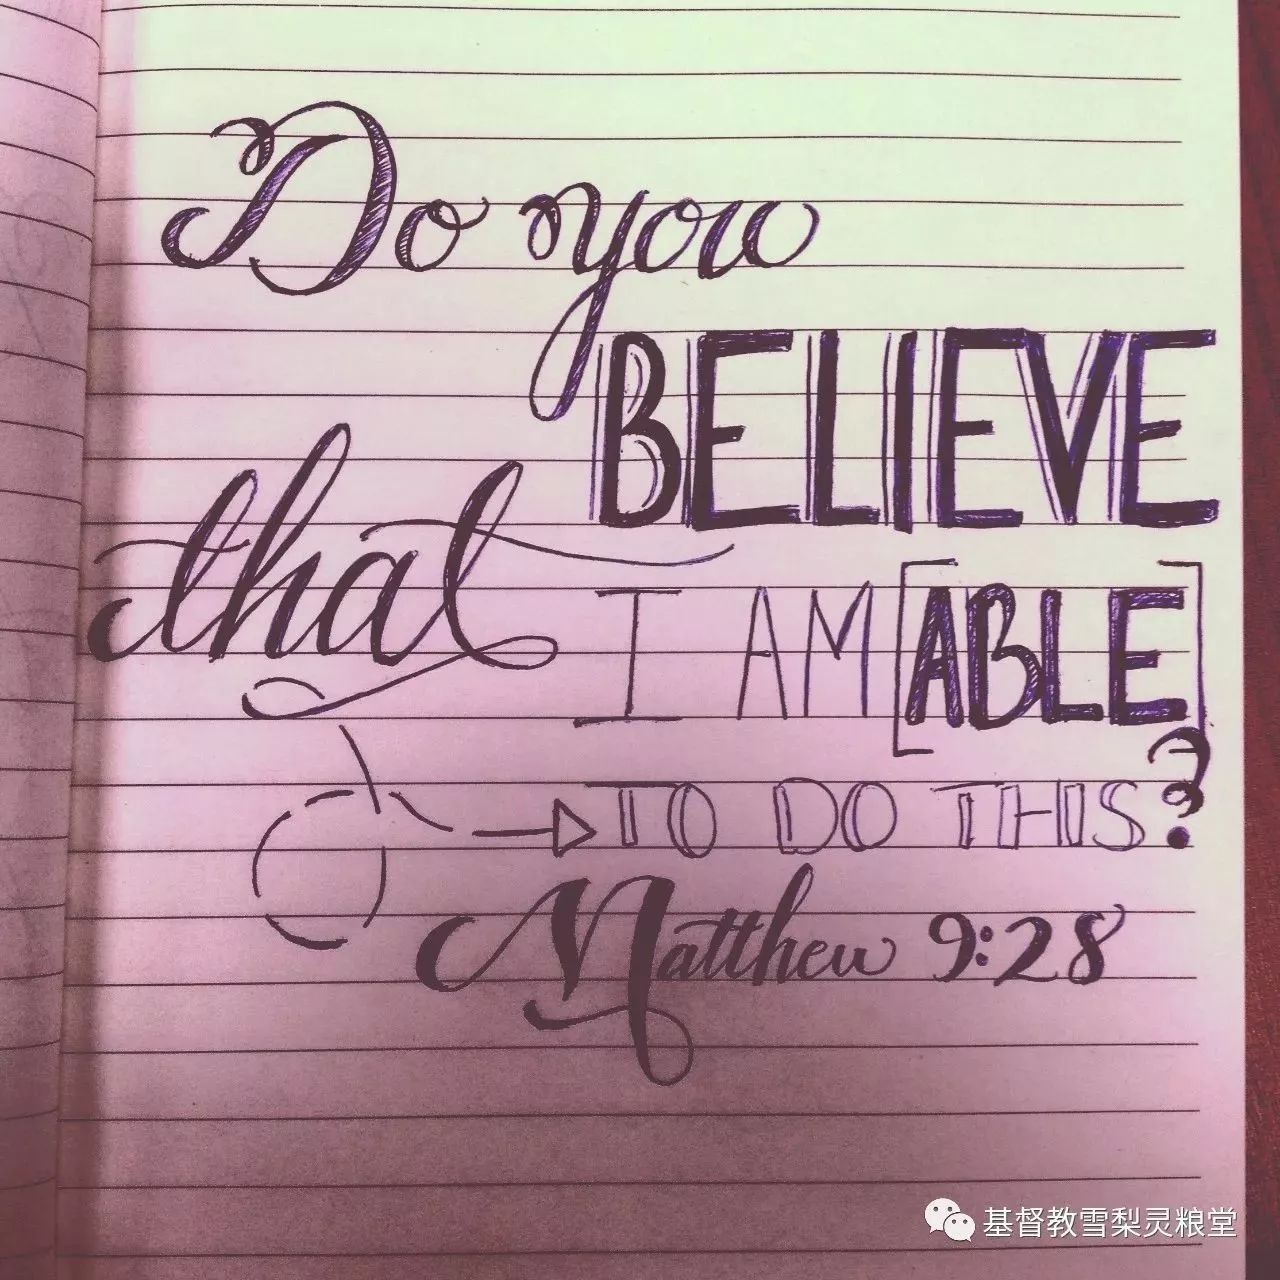 Do you
BELIEVE
that
I AM [ABLE]
TO DO THIS?
Matthew 9:28
基督教雪梨灵粮堂